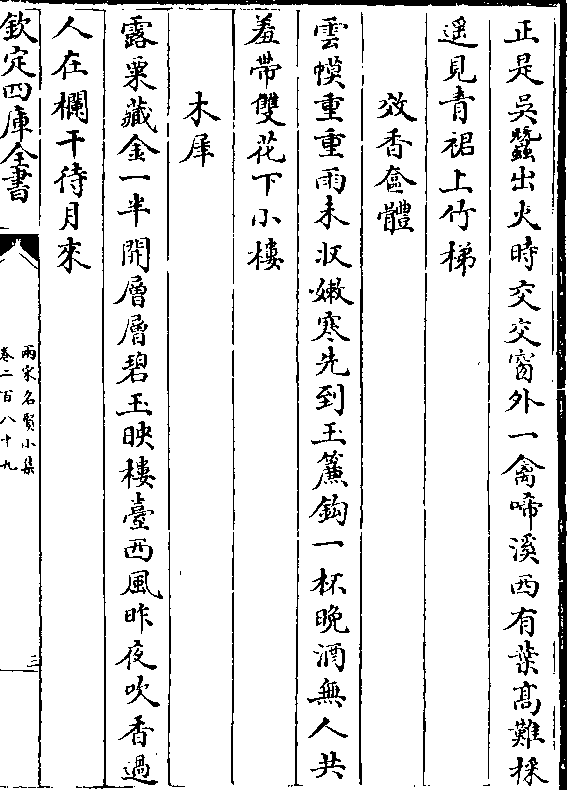 正是吳蠶出火時交交窗外一禽啼溪西有葉髙難採
遥見青裙上竹梯
效香奩體
雲幙重重雨未收嫩寒先到玉簾鈎一杯晚酒無人共
羞帶雙花下小樓
木犀
露粟藏金一半開層層碧玉映樓臺西風昨夜吹香過
人在欄干待月來
欽定四庫全書
兩宋名賢小集
卷二百八十九
三